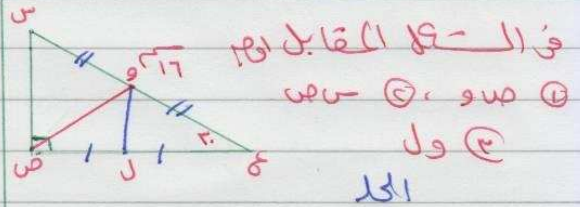 فى الشكل المقابل أوجد
① ص و ، ② س ص
③ و ل
الحل
س
و
١٦ سم
٣٠
ع
ل
ص